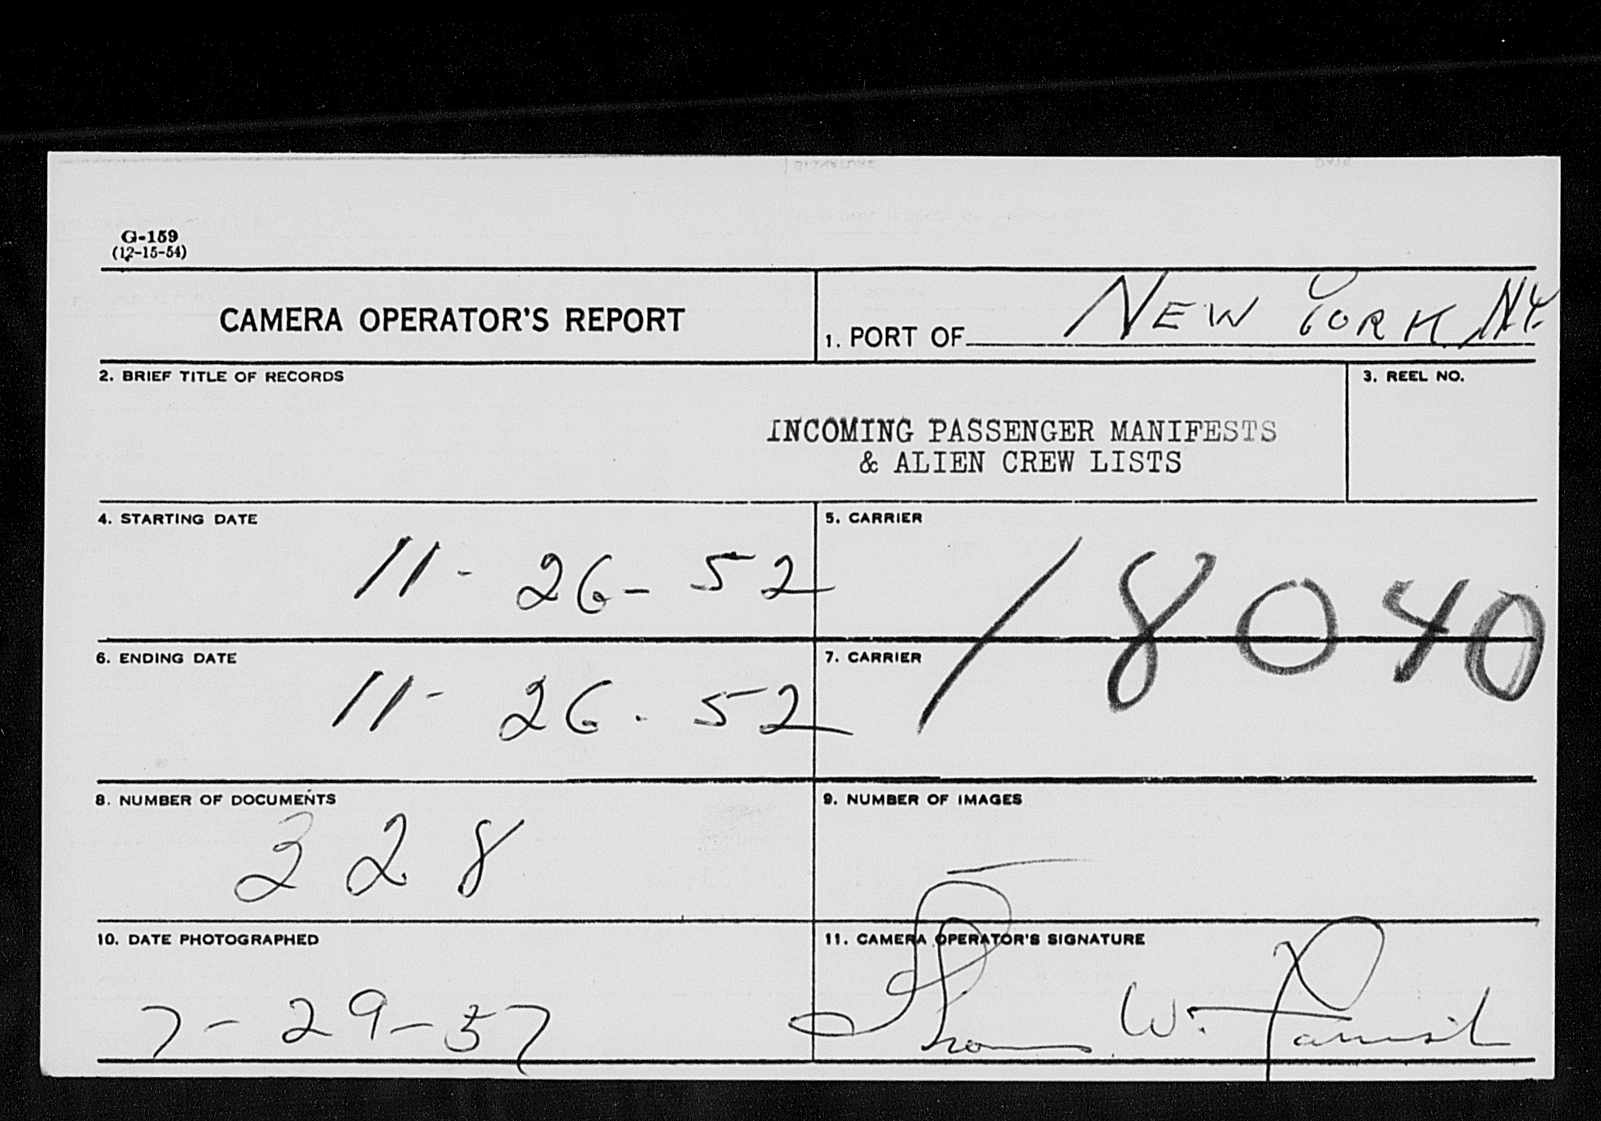 G-159
(12-15-54)
CAMERA OPERATOR'S REPORT
1. PORT OF NEW YORK N.Y.
2. BRIEF TITLE OF RECORDS
INCOMING PASSENGER MANIFESTS
& ALIEN CREW LISTS
3. REEL NO.
4. STARTING DATE
11-26-52
5. CARRIER
18040
6. ENDING DATE
11-26-52
7. CARRIER
8. NUMBER OF DOCUMENTS
328
9. NUMBER OF IMAGES
10. DATE PHOTOGRAPHED
7-29-57
11. CAMERA OPERATOR'S SIGNATURE
Thomas W. Parrish